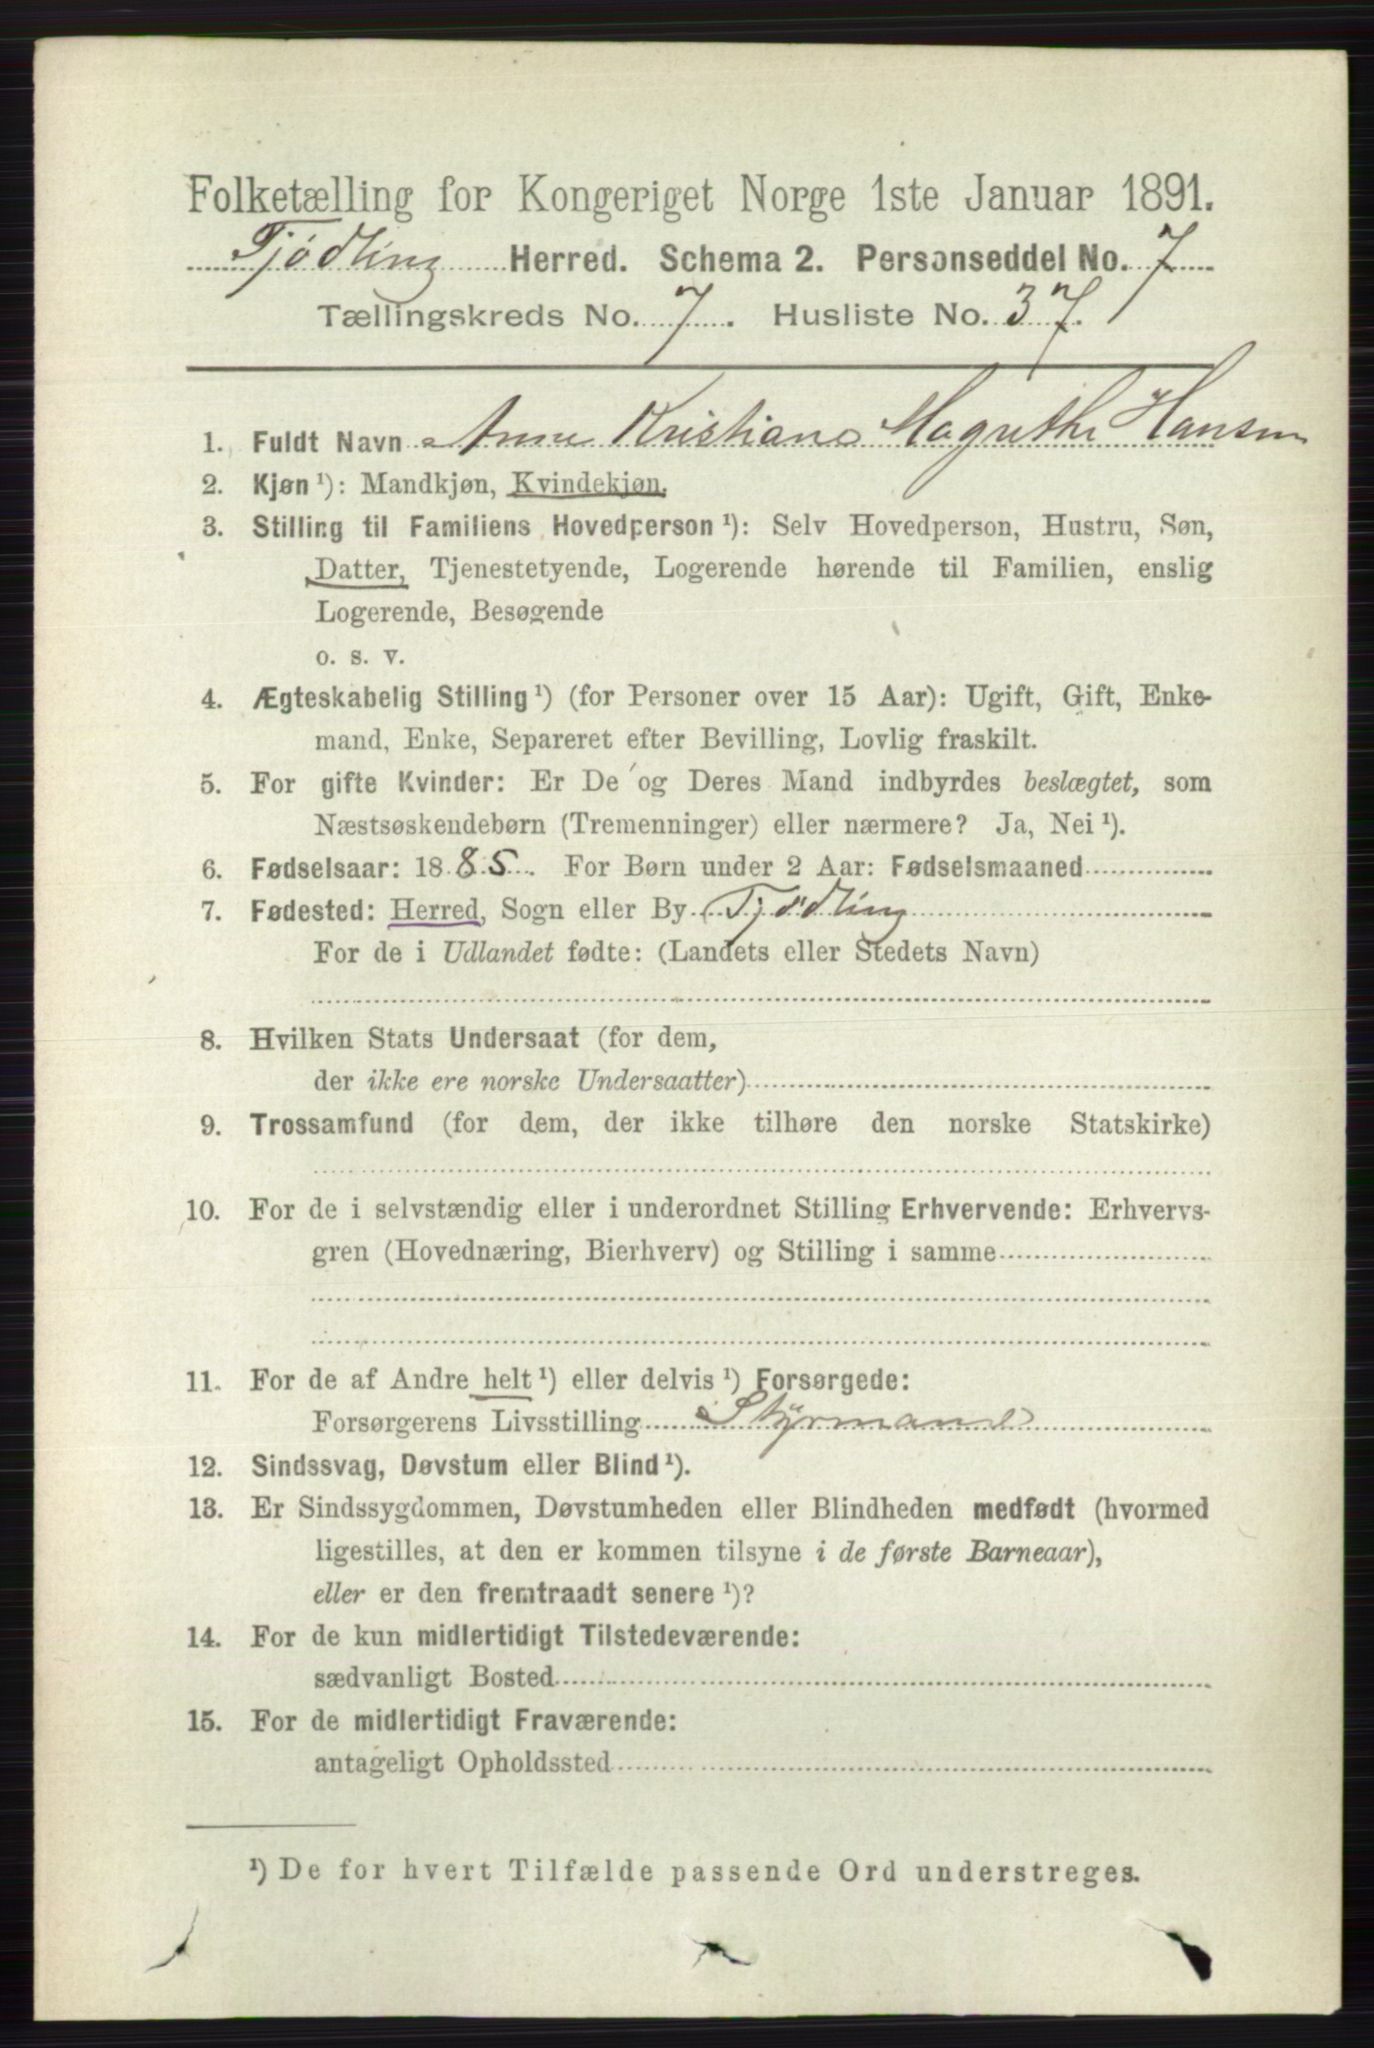 Folketælling for Kongeriget Norge 1ste Januar 1891.
Tjødling Herred. Schema 2. Personseddel No. 7
Tællingskreds No. 7. Husliste No. 37.
1. Fuldt Navn Anne Kristiane Magrethe Hansen
2. Kjøn ¹): Mandkjøn, Kvindekjøn.
3. Stilling til Familiens Hovedperson ¹): Selv Hovedperson, Hustru, Søn,
Datter, Tjenestetyende, Logerende hørende til Familien, enslig
Logerende, Besøgende
o. s. v.
4. Ægteskabelig Stilling ¹) (for Personer over 15 Aar): Ugift, Gift, Enke-
mand, Enke, Separeret efter Bevilling, Lovlig fraskilt.
5. For gifte Kvinder: Er De og Deres Mand indbyrdes beslægtet, som
Næstsøskendebørn (Tremenninger) eller nærmere? Ja, Nei ¹).
6. Fødselsaar: 1885. For Børn under 2 Aar: Fødselsmaaned
7. Fødested: Herred, Sogn eller By Tjödling
For de i Udlandet fødte: (Landets eller Stedets Navn)
8. Hvilken Stats Undersaat (for dem,
der ikke ere norske Undersaatter)
9. Trossamfund (for dem, der ikke tilhøre den norske Statskirke)
10. For de i selvstændig eller i underordnet Stilling Erhvervende: Erhvervs-
gren (Hovednæring, Bierhverv) og Stilling i samme
11. For de af Andre helt ¹) eller delvis ¹) Forsørgede:
Forsørgerens Livsstilling Styrmand
12. Sindssvag, Døvstum eller Blind ¹).
13. Er Sindssygdommen, Døvstumheden eller Blindheden medfødt (hvormed
ligestilles, at den er kommen tilsyne i de første Barneaar),
eller er den fremtraadt senere ¹)?
14. For de kun midlertidigt Tilstedeværende:
sædvanligt Bosted
15. For de midlertidigt Fraværende:
antageligt Opholdssted
¹) De for hvert Tilfælde passende Ord understreges.